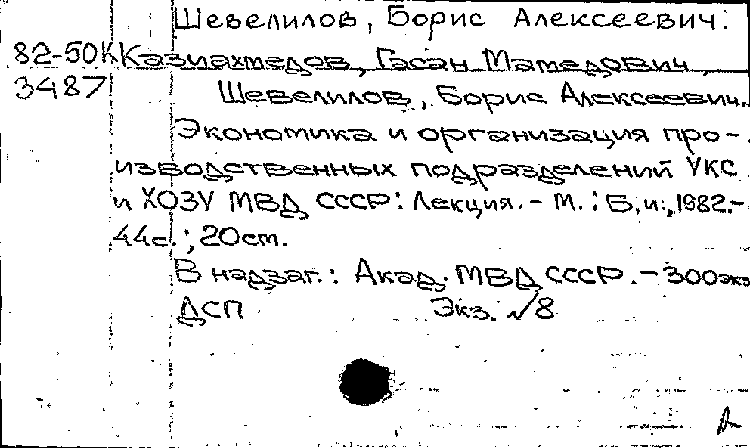 Шевелилов, Борис Алексеевич:
82-50К Казиахмедов, Гасан Мамедович,
3487 Шевелилов, Борис Алексеевич.
Экономика и организация про-
изводственных подразделений УКС
и ХОЗУ МВД СССР: Лекция.- М.: Б.и., 1982.-
44с.; 20см.
В надзаг.: Акад. МВД СССР.- 300экз
ДСП Экз. №8